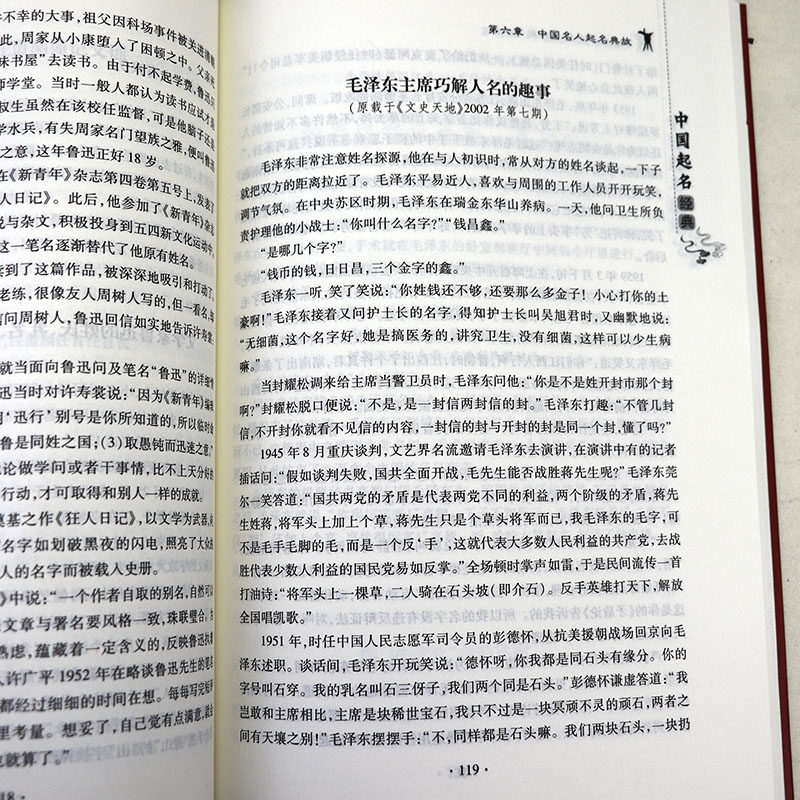 不幸的大事，祖父因科场事件被关进
此，周家从小康堕入了困顿之中。父
味书屋”去读书。由于付不起学费，鲁迅
师学堂。当时一般人都认为读书应试才是
叔生虽然在该校任监督，可是他脑子还是
学水兵，有失周家名门望族之雅，便叫鲁迅
之意，这年鲁迅正好 18 岁。
在《新青年》杂志第四卷第五号上，发表了
人日记》。此后，他参加了《新青年》杂志
说与杂文，积极投身到五四新文化运动中。
这一笔名逐渐替代了他原有姓名。
读到了这篇作品，被深深地吸引和打动了。
老练，很像友人周树人写的，但一看名，
信问周树人，鲁迅回信如实地告诉许寿裳：
就当面向鲁迅问及笔名“鲁迅”的详细情
迅当时对许寿裳说：“因为《新青年》编辑
用‘迅行’别号是你所知道的，所以临时
鲁是同姓之国；(3)取愚钝而迅速之意。”
论做学问或者干事情，比不上天分好的
行动，才可取得和别人一样的成就。
奠基之作《狂人日记》，以文学为武器，
名字如划破黑夜的闪电，照亮了大众的
人的名字而被载入史册。
》中说：“一个作者自取的别名，自然可以
文章与署名要风格一致，珠联璧合。为
熟虑，蕴藏着一定含义的，反映鲁迅执着
人许广平 1952 年在略谈鲁迅先生的笔名
都经过细细的时间在想。每每写完短
里考量。想妥了，自己觉有点满意，就
也就算了。”
18
第六章 中国名人起名典故
中国起名经典
毛泽东主席巧解人名的趣事
（原载于《文史天地》2002 年第七期）
毛泽东非常注意姓名探源，他在与人初识时，常从对方的姓名谈起，一下子
就把双方的距离拉近了。毛泽东平易近人，喜欢与周围的工作人员开开玩笑，
调节气氛。在中央苏区时期，毛泽东在瑞金东华山养病。一天，他问卫生所负
责护理他的小战士：“你叫什么名字？”“钱昌鑫。”
“是哪几个字？”
“钱币的钱，日日昌，三个金字的鑫。”
毛泽东一听，笑了笑说：“你姓钱还不够，还要那么多金子！小心打你的土
豪啊！”毛泽东接着又问护士长的名字，得知护士长叫吴旭君时，又幽默地说：
“无细菌，这个名字好，她是搞医务的，讲究卫生，没有细菌，这样可以少生病
嘛。”
当封耀松调来给主席当警卫员时，毛泽东问他：“你是不是姓开封市那个封
啊？”封耀松脱口便说：“不是，是一封信两封信的封。”毛泽东打趣：“不管几封
信，不开封你就看不见信的内容，一封信的封与开封的封是同一个封，懂了吗？”
1945 年 8 月重庆谈判，文艺界名流邀请毛泽东去演讲，在演讲中有的记者
插话问：“假如谈判失败，国共全面开战，毛先生能否战胜蒋先生呢？”毛泽东莞
尔一笑答道：“国共两党的矛盾是代表两党不同的利益，两个阶级的矛盾，蒋先
生姓蒋，将军头上加上个草，蒋先生只是个草头将军而已，我毛泽东的毛字，可
不是毛手毛脚的毛，而是一个反‘手’，这就代表大多数人民利益的共产党，去战
胜代表少数人利益的国民党易如反掌。”全场顿时掌声如雷，于是民间流传一首
打油诗：“将军头上一棵草，二人骑在石头坡（即介石）。反手英雄打天下，解放
全国唱凯歌。”
1951 年，时任中国人民志愿军司令员的彭德怀，从抗美援朝战场回京向毛
泽东述职。谈话间，毛泽东开玩笑说：“德怀呀，你我都是同石头有缘分。你的
字号叫石穿。我的乳名叫石三伢子，我们两个同是石头。”彭德怀谦虚答道：“我
岂敢和主席相比，主席是块稀世宝石，我只不过是一块冥顽不灵的顽石，两者之
间有天壤之别！”毛泽东摆摆手：“不，同样都是石头嘛。我们两块石头，一块扔
· 119 ·